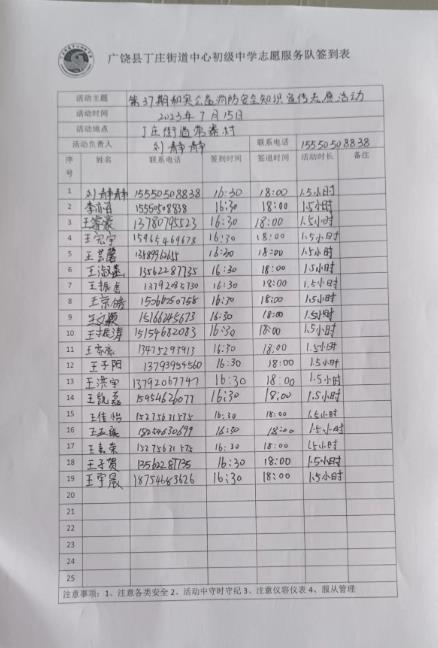 广饶县丁庄街道中心初级中学志愿服务队签到表
活动主题 第37期和实公益消防安全知识宣传志愿活动
活动时间 2023年7月15日
活动地点 丁庄街道
活动负责人 刘静静 联系电话 15550508838
序号 姓名 联系电话 签到时间 签退时间 活动时长 备注
1 刘静静 15550508838 16:30 18:00 1.5小时
2 16:30 18:00 1.5小时
3 13780795523 16:30 18:00 1.5小时
4 王元宇 15965469678 16:30 18:00 1.5小时
5 16:30 18:00 1.5小时
6 13562287735 16:30 18:00 1.5小时
7 16:30 18:00 1.5小时
8 16:30 18:00 1.5小时
9 15166245673 16:30 18:00 1.5小时
10 王振涛 15154682083 16:30 18:00 1.5小时
11 16:30 18:00 1.5小时
12 王子阳 13793954560 16:30 18:00 1.5小时
13 王洪宇 13792067747 16:30 18:00 1.5小时
14 16:30 18:00 1.5小时
15 王佳怡 16:30 18:00 1.5小时
16 16:30 18:00 1.5小时
17 16:30 18:00 1.5小时
18 王子贺 13562287735 16:30 18:00 1.5小时
19 王宇晨 18754683626 16:30 18:00 1.5小时
20
21
22
23
24
25
注意事项：1、注意各类安全 2、活动中守时守纪 3、注意仪容仪表 4、服从管理